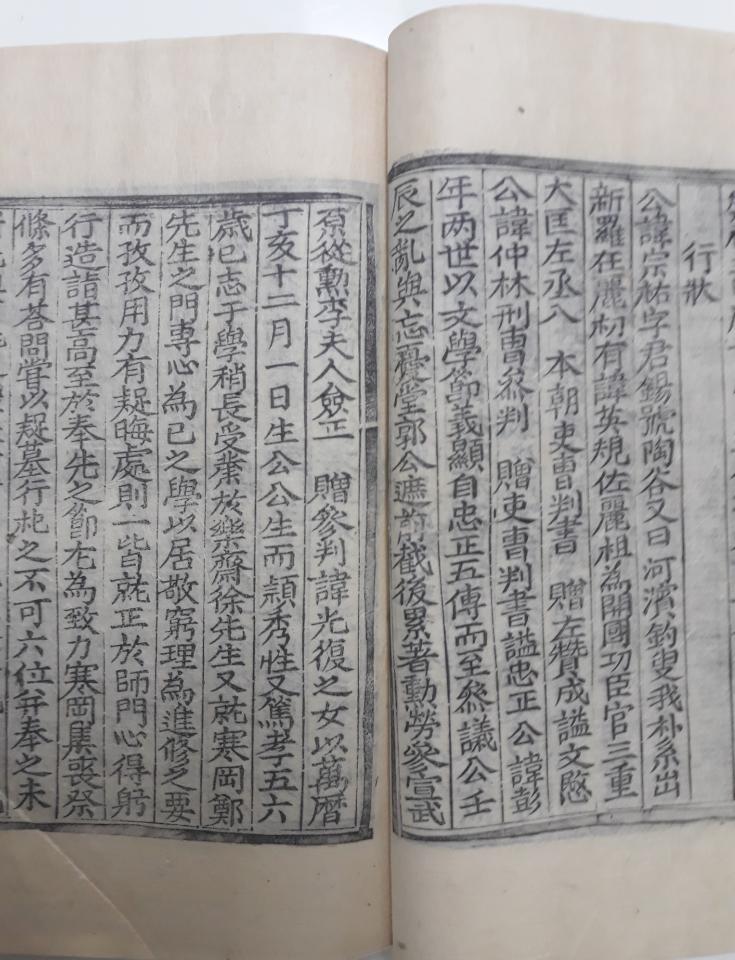 行狀
公諱宗祐字君錫號陶谷又曰河濱釣叟我朴系出
新羅在麗初有諱英規佐麗祖為開國功臣官三重
大匡左丞八 本朝吏曹判書 贈左贊成謚文愍
公諱仲林刑曹叅判 贈吏曹判書謚忠正公諱彭
年两世以文學節義顯自忠正五傳而至叅議公壬
辰之亂與忘憂堂郭公遮前截後累著勳勞參宣武
原從勲李夫人僉正 贈參判諱光復之女以萬曆
丁亥十二月一日生公公生而穎秀性又篤孝五六
歲已志于學稍長受業於樂齋徐先生又就寒岡鄭
先生之門專心為已之學以居敬窮理為進修之要
而孜孜用力有疑晦處則一皆就正於師門心得躬
行造詣甚高至於奉先之節尤為致力寒岡集喪祭
條多有荅問嘗以疑墓行祀之不可六位并奉之未